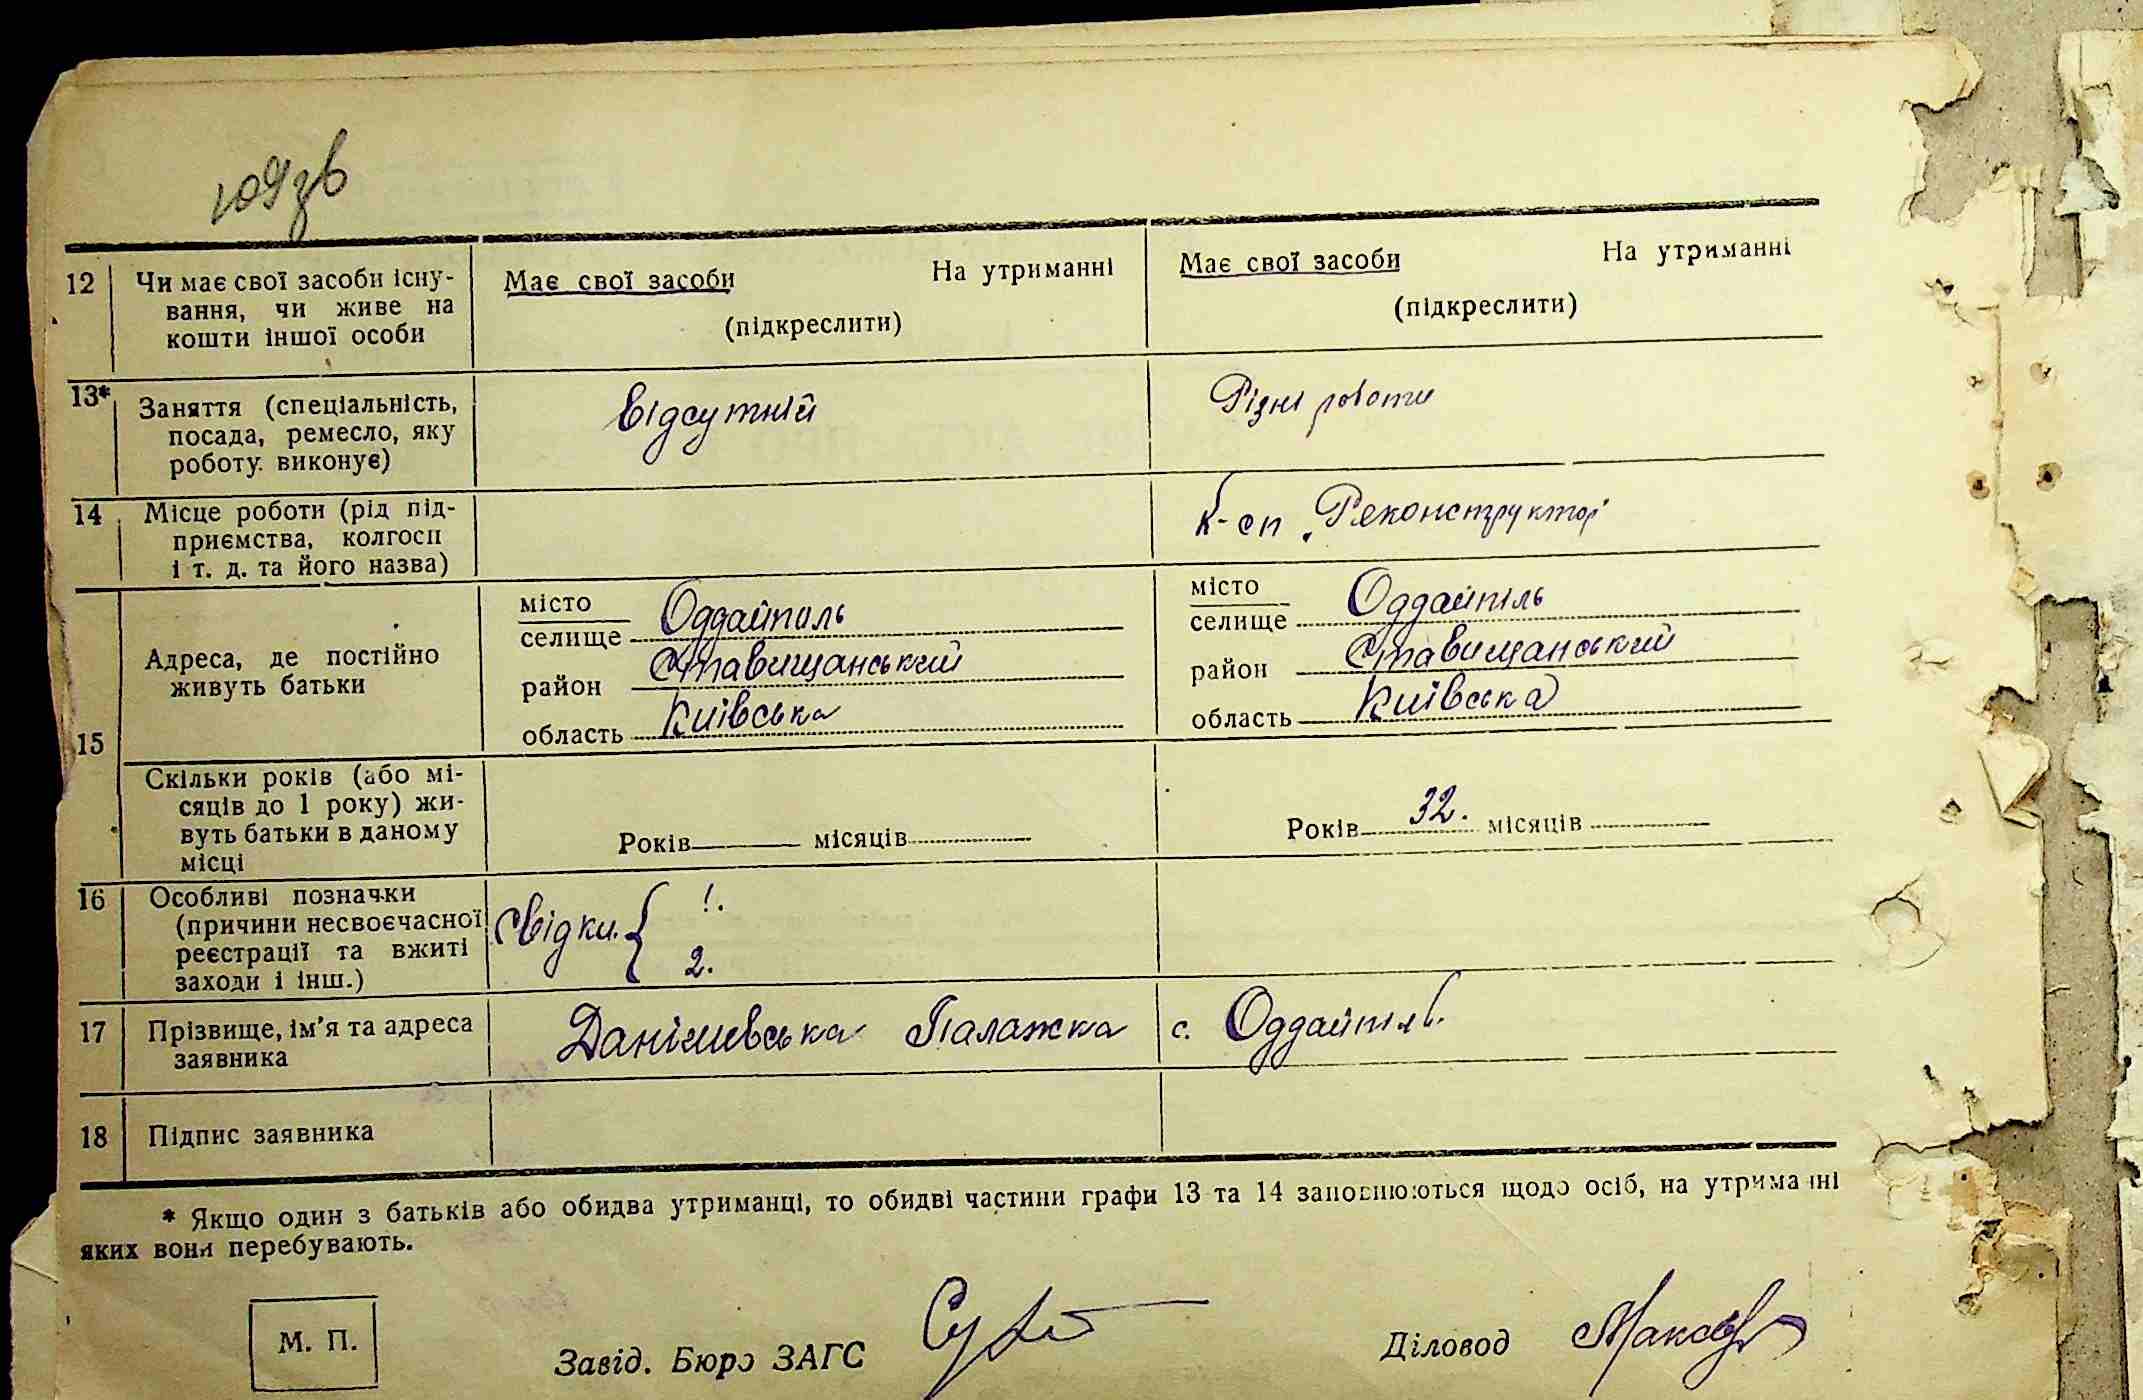 109зв
12 Чи має свої засоби існу- Має свої засоби На утриманні Має свої засоби На утриманні
вання, чи живе на (підкреслити) (підкреслити)
кошти іншої особи
13* Заняття (спеціальність, відсутній Різні роботи
посада, ремесло, яку
роботу виконує)
14 Місце роботи (рід під- к-сп „Реконструктор"
приємства, колгосп
і т. д. та його назва)
15 Адреса, де постійно живуть батьки
місто
селище Оддайпіль
район Ставищанський
область Київська
місто
селище Оддайпіль
район Ставищанський
область Київська
Скільки років (або мі-
сяців до 1 року) жи-
вуть батьки в даному Років місяців Років 32. місяців
місці
16 Особливі позначки Свідки. { 1.
(причини несвоєчасної 2.
реєстрації та вжиті
заходи і інш.)
17 Прізвище, ім'я та адреса Данішевська Палажка с. Оддайпіль.
заявника
18 Підпис заявника
* Якщо один з батьків або обидва утриманці, то обидві частини графи 13 та 14 заповнюються щодо осіб, на утриманні
яких вони перебувають.
М. П.
Завід. Бюро ЗАГС Діловод